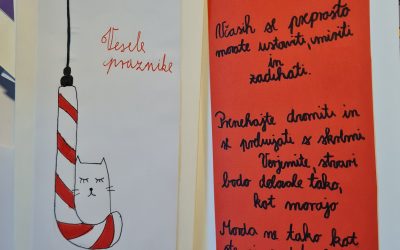 Vesele
praznike
Včasih se preprosto
morate ustaviti, umiriti
in
zadihati.
Prenehajte dvomiti in
se prebujati s skrbmi
Verjemite, stvari
bodo delovale tako,
kot morajo
Morda ne tako kot